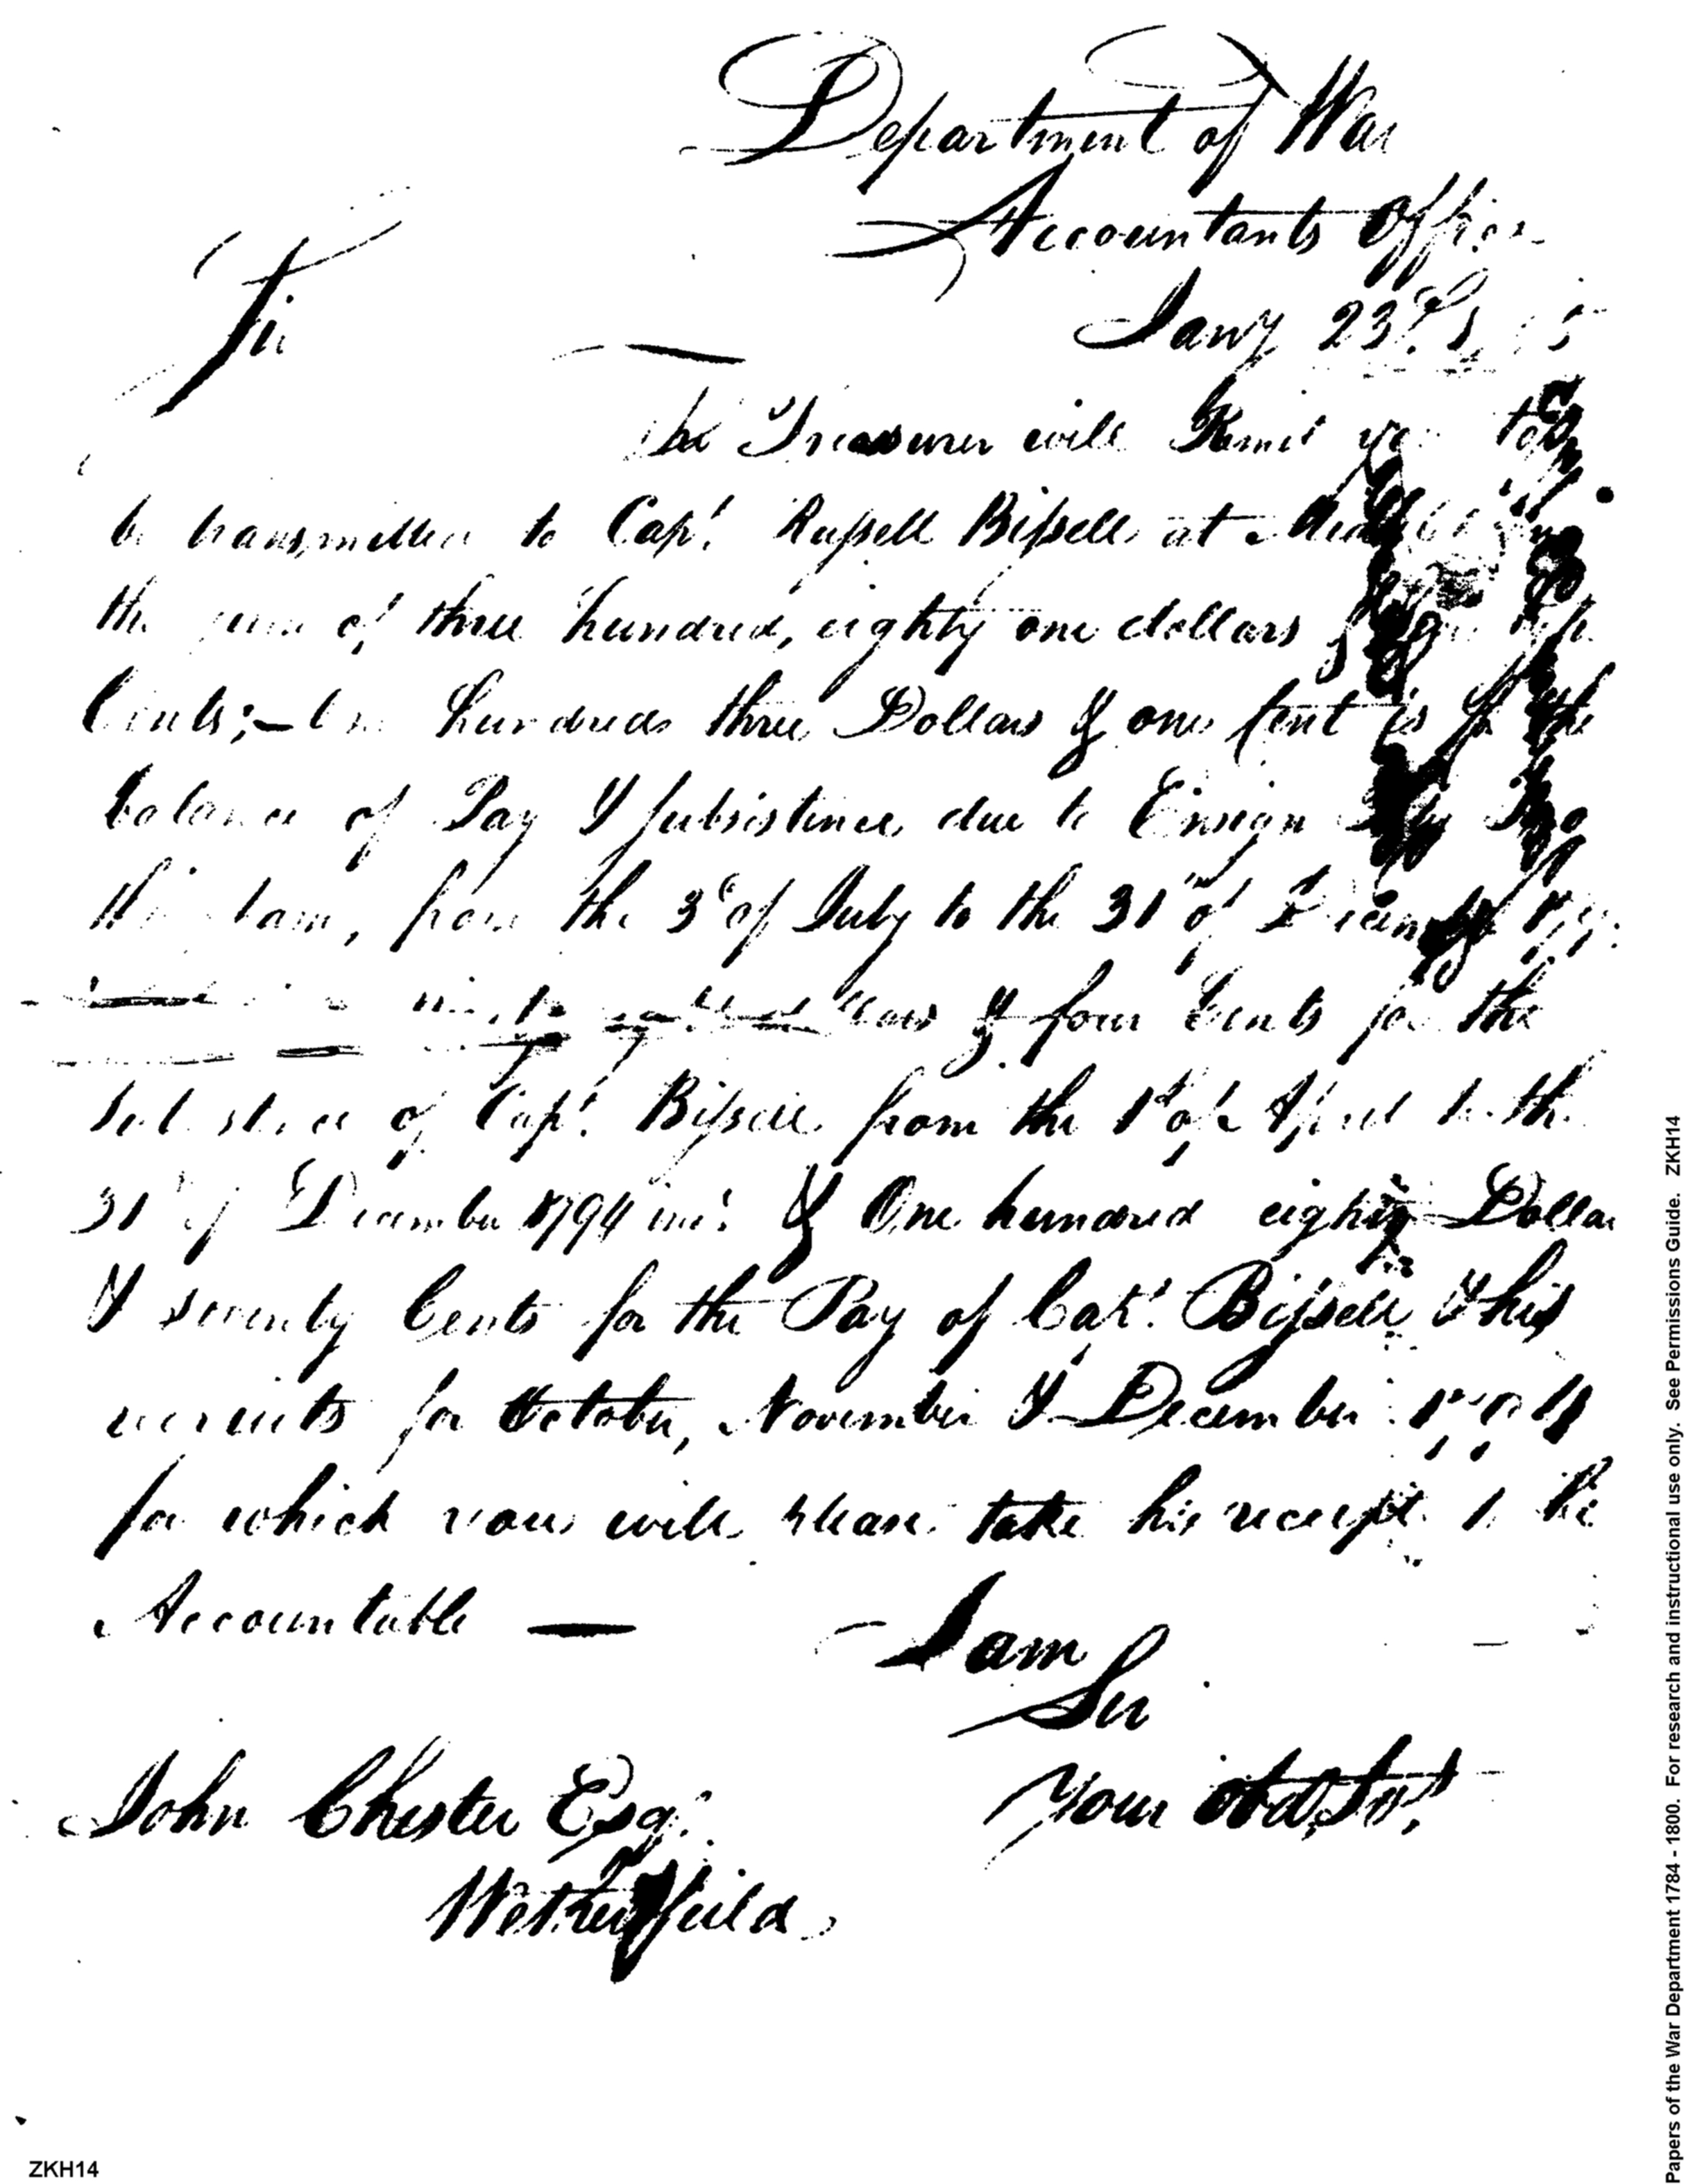 Department of War
Accountants Office
Jany 23d
Sir
The Treasurer will Remit you to
be transmitted to Capt. Russell Bissell at
the sum of three hundred, eighty one dollars &
Cents;— One hundred three Dollars & one Cent is for the
balance of Pay & subsistence due to Ensign
from the 3d of July to the 31st of December
& four Cents for the
subsistence of Capt. Bissell from the 1st of April to the
31st of December 1794 inc. & One hundred eighty Dollars
& seventy Cents for the Pay of Capt. Bissell & his
recruits for October, November & December 1794
for which you will please take his receipt to be
Accountable —
I am
Sir
Your obdt. Svt.
John Chester Esqr.
Wethersfield
Papers of the War Department 1784 - 1800. For research and instructional use only. See Permissions Guide. ZKH14
ZKH14